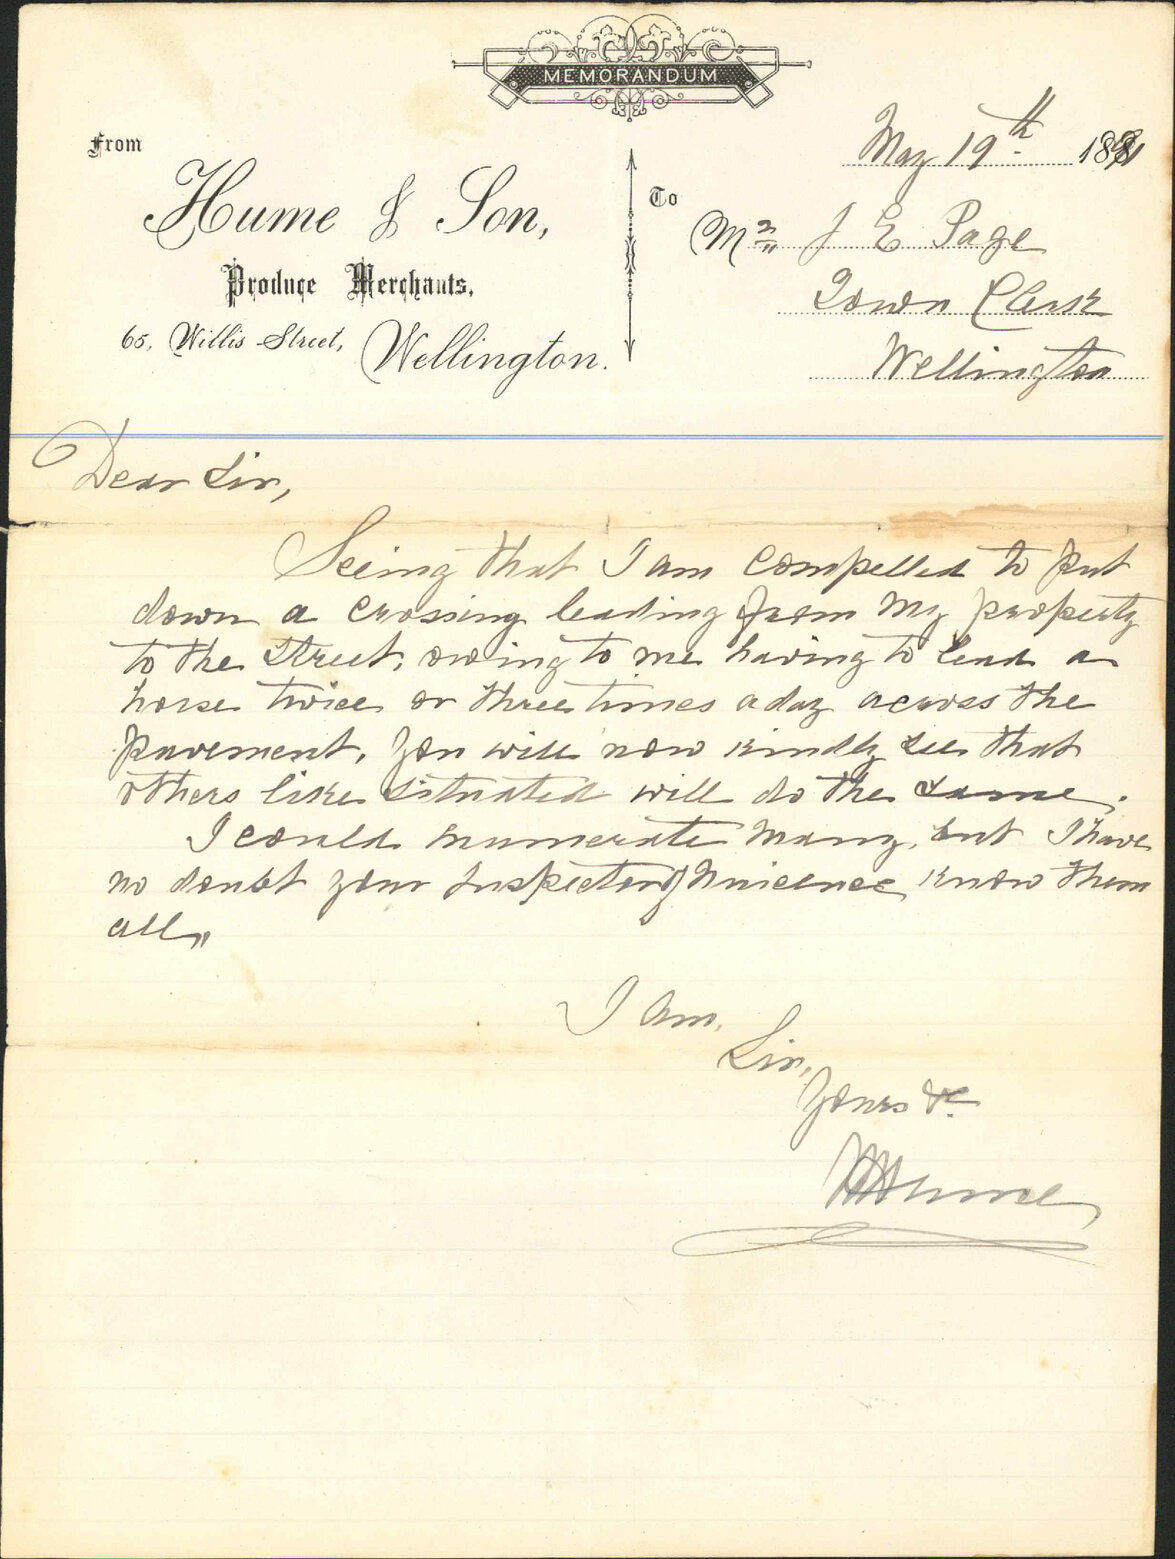 MEMORANDUM
From
Hume & Son,
Produce Merchants,
65, Willis Street, Wellington.
May 19th 1891
To
Mr J E Page
Town Clerk
Wellington
Dear Sir,
Seeing that I am compelled to put
down a crossing leading from my property
to the Street, owing to me having to lead a
horse twice or three times a day across the
pavement, you will now kindly see that
others like situated will do the same.
I could enumerate many, but I have
no doubt your Inspector of Nuicence know them
all,,
I am,
Sir,
Yours &c
Hume